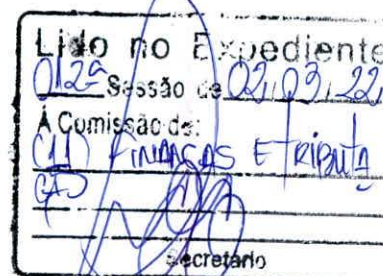 Lido no Expediente
012ª Sessão de 02/03/22
À Comissão de:
(11) FINANÇAS E TRIBUTA
ÇÃO
Secretário